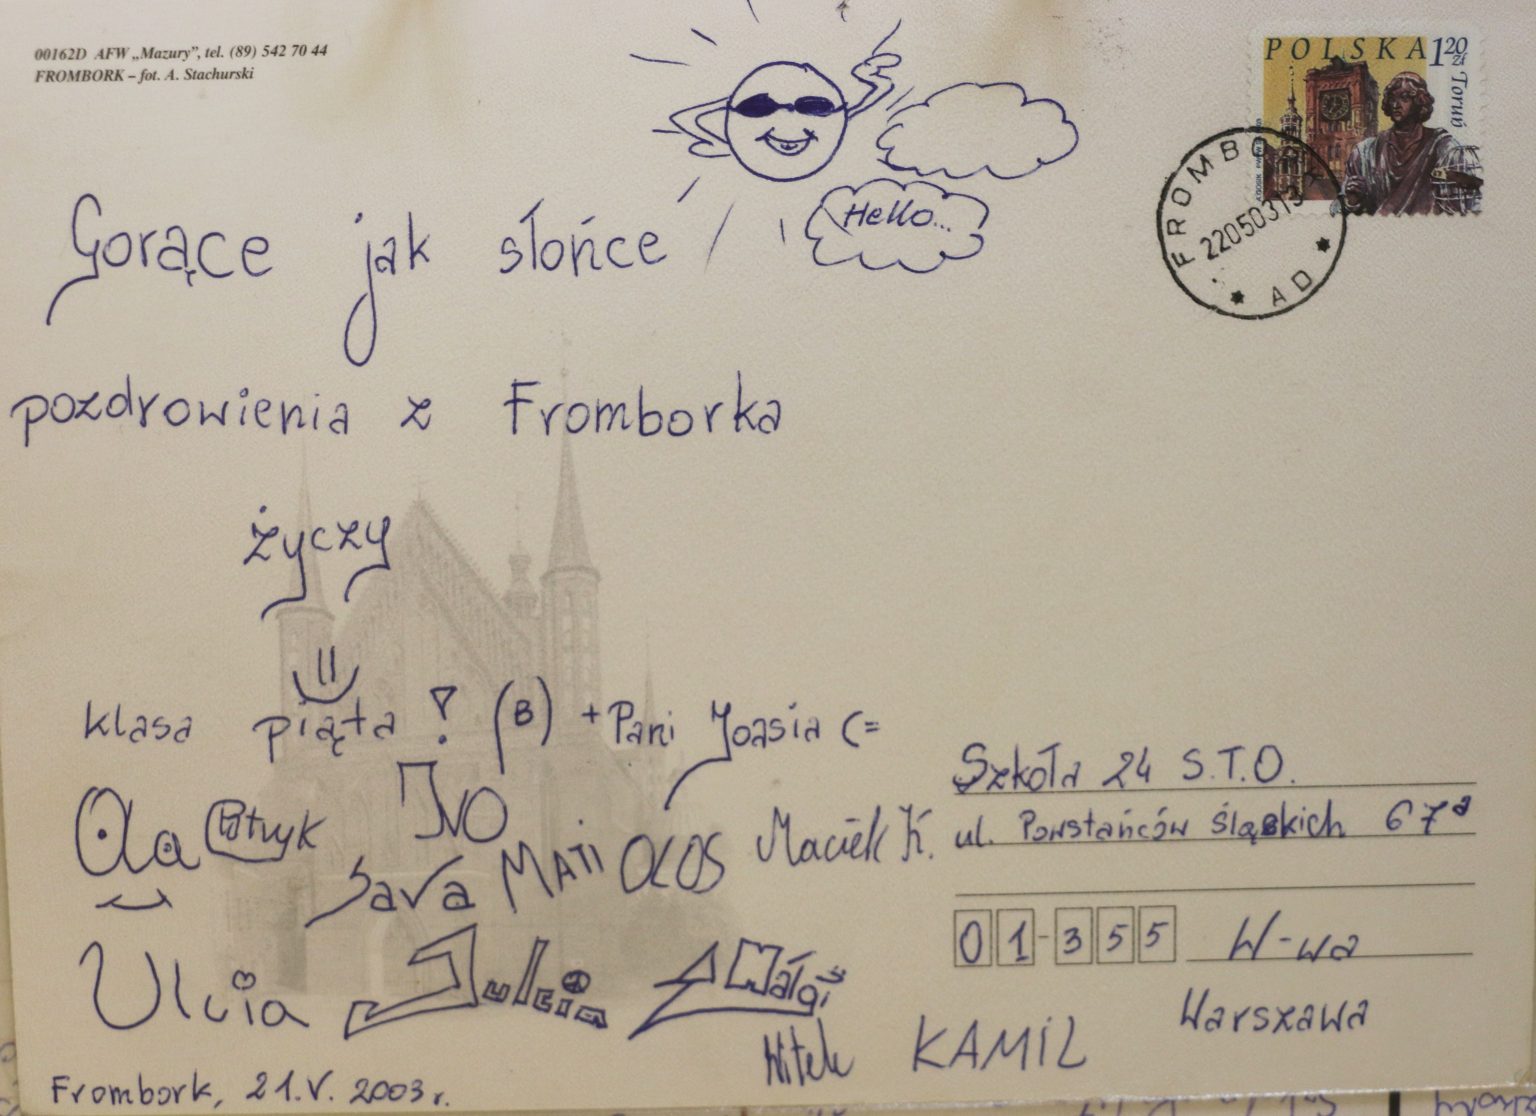 00162D AFW „Mazury”, tel. (89) 542 70 44
FROMBORK – fot. A. Stachurski
POLSKA 1 20 zł
Toruń
FROMBORK
22050315
★ AD ★
Hello...
Gorące jak słońce
pozdrowienia z Fromborka
życzy
klasa piąta! (B) + Pani Joasia (=
Ola Patryk IVO
Sava MATI OLOS Maciek K.
Ulcia Julcia Małgi
Witek KAMIL
Frombork, 21.V.2003r.
Szkoła 24 S.T.O.
ul. Powstańców Śląskich 67a
01-355 W-wa
Warszawa